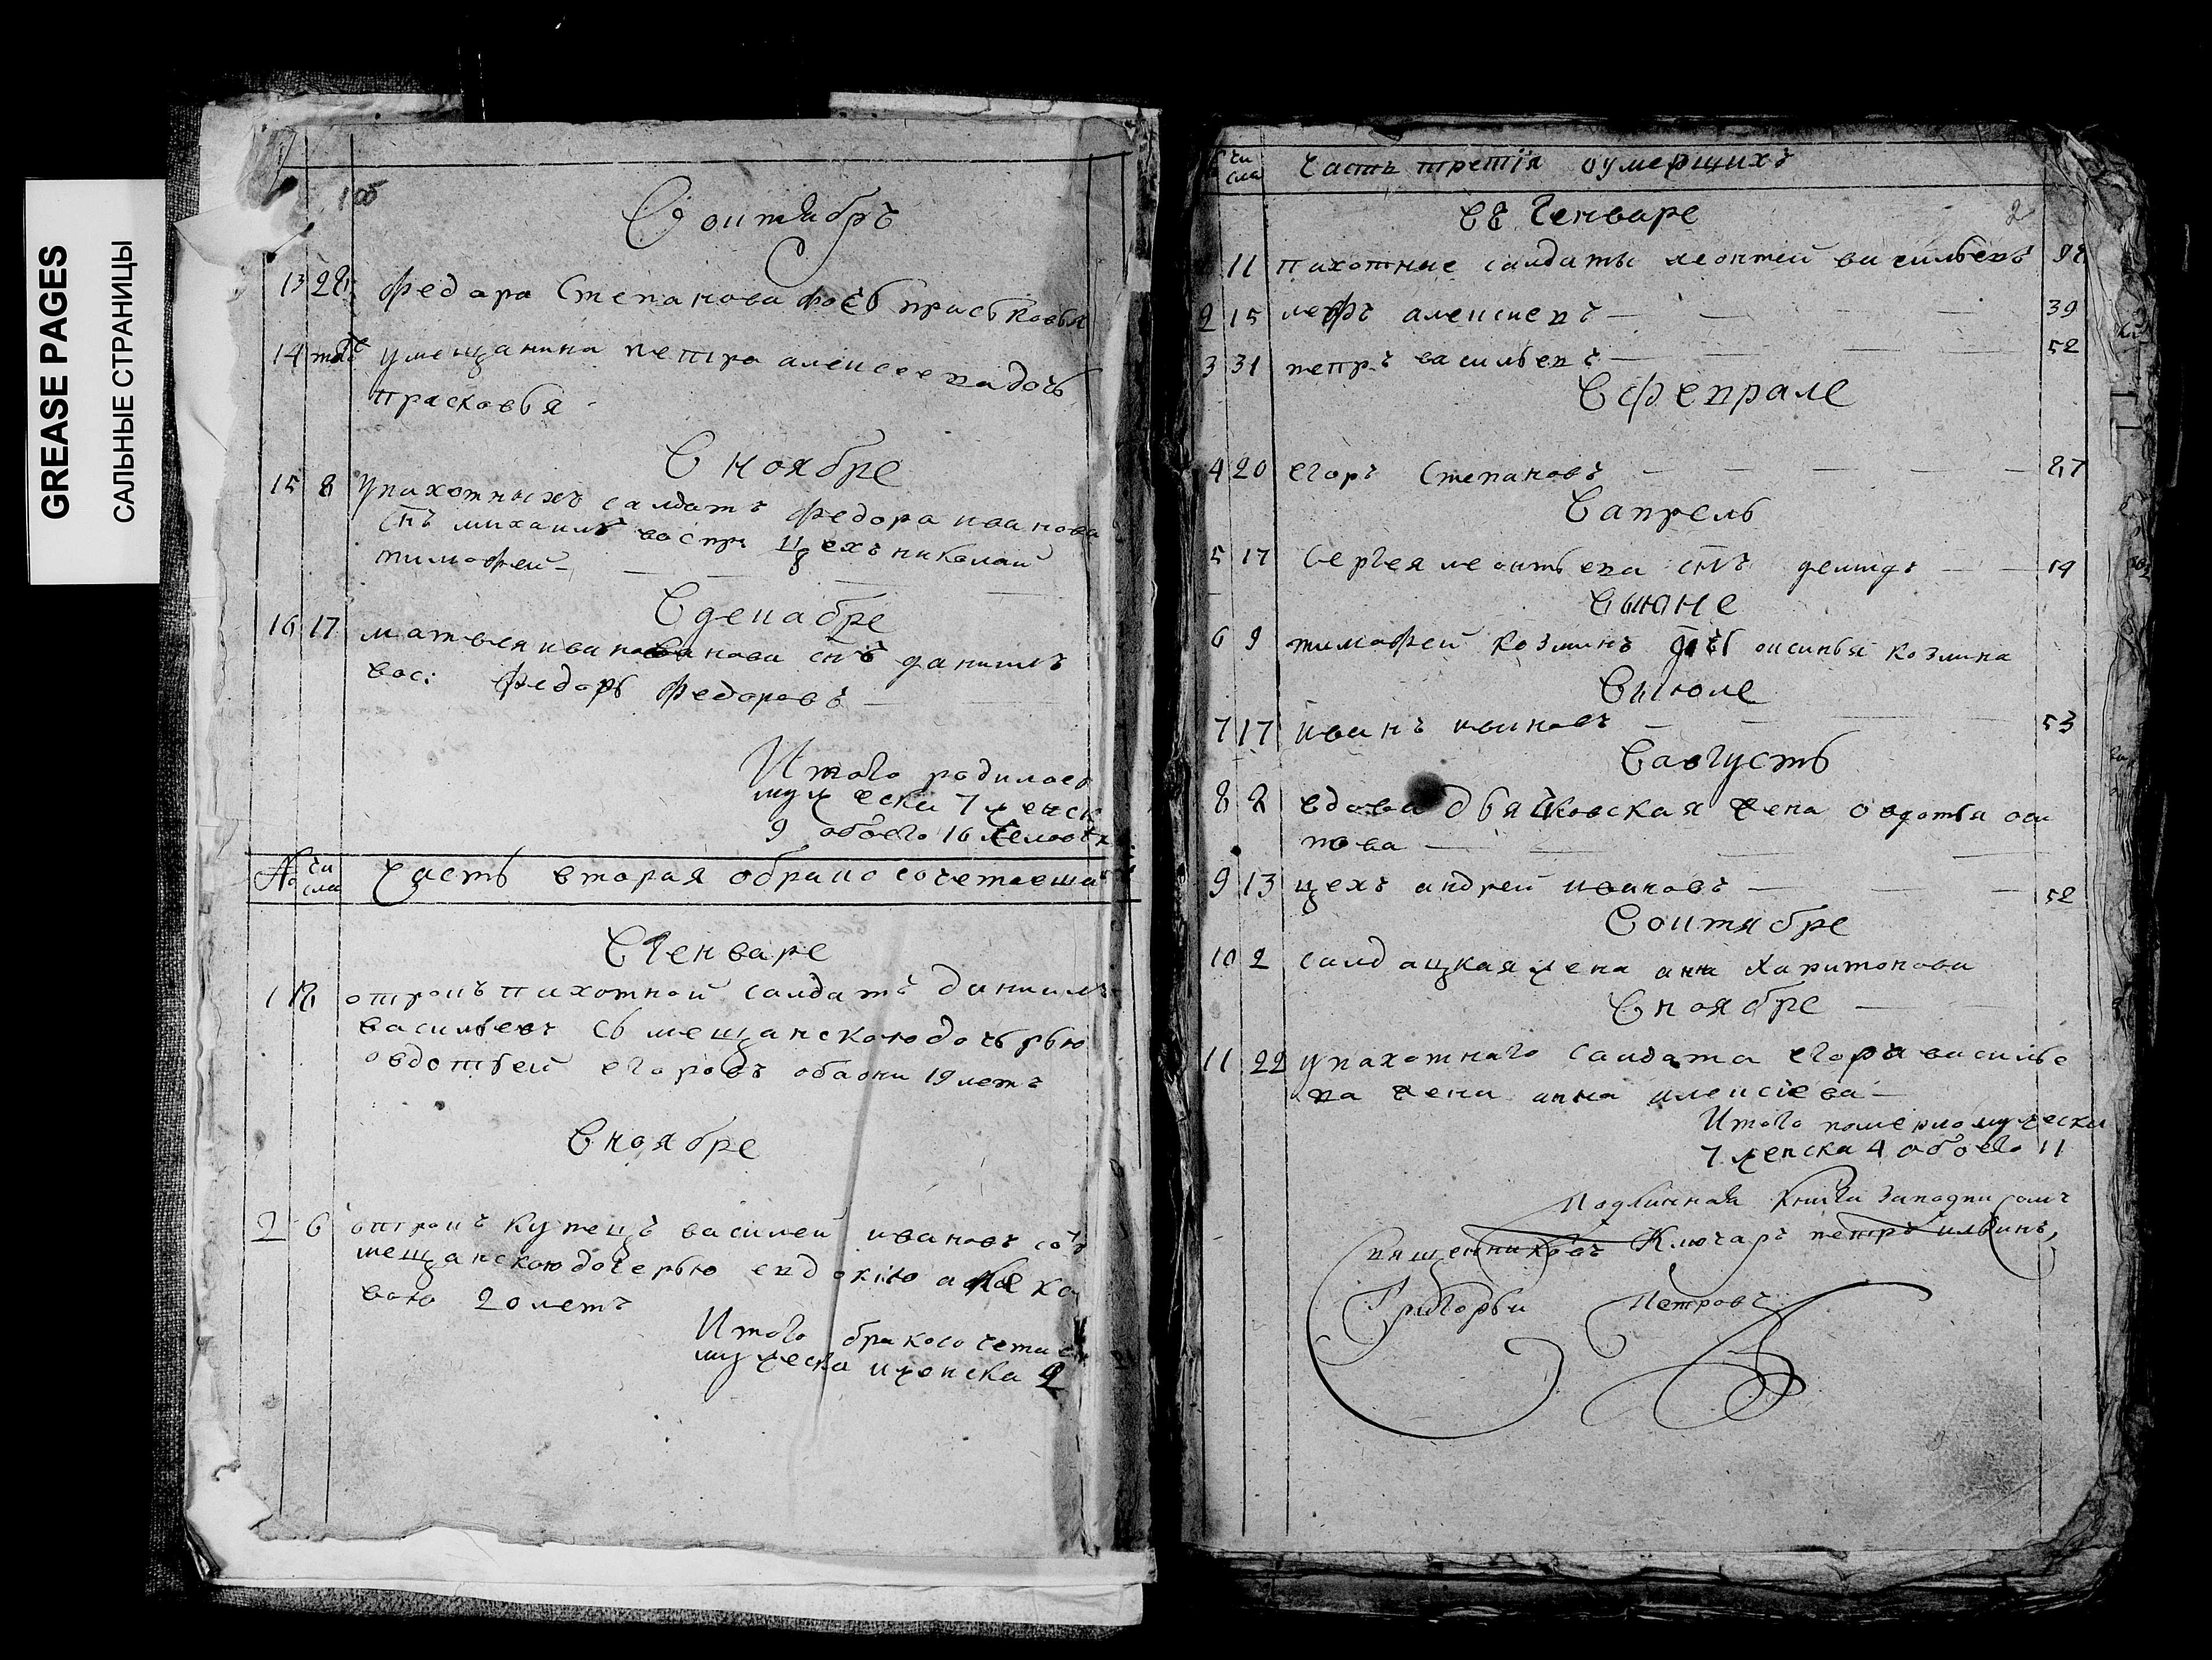 GREASE PAGES
САЛЬНЫЕ СТРАНИЦЫ
100
Воктябрѣ
13 28 федора Степанова дочь прасковья
14 тогоже умещанина петра алексеева дочь
прасковья
В ноябре
15 8 упахотныхъ салдатъ федора иванова
снъ михаилъ воспри цехъ николай
тимофей
В декабре
16 17 матвея иванова снъ данилъ
вос: федоръ федоровъ
Итого родилось
мужеска 7 женск
9 обоего 16 человекъ
№ числа Часть вторая обракосочетавши
В Генваре
1 18 отрокъ пахотной салдатъ данилъ
васильевъ съ мещанскою дочерью
овдотьей егоровъ обаони 19 летъ
В ноябре
2 6 отрокъ купецъ василей ивановъ съ
мещанскою дочерью евдокию
вою 20 летъ
Итого бракосочета
мужеска иженска 2
числа Часть третїя оумерщихъ
2
Въ Генваре
11 пахотные салдаты леонтей васильевъ 92
2 15 алексиевъ 39
3 31 петръ васильевъ 52
В феврале
4 20 егоръ Степановъ 87
В апрель
5 17 Сергея леонтьева снъ демидъ 19
В июне
6 9 тимофей козминъ оксинья козмина
В июле
7 17 иванъ ивановъ 53
В августь
8 2 вдова дьячковская жена овдотья
това
9 13 цехъ андрей ивановъ 52
В октябре
10 2 салдацкая жена анна Харитонова
В ноябре
11 22 упахотнаго салдата егора василье
ва жена анна алексїева
Итого померло мужеска
7 женска 4 обоего 11
Подлинная книга заподписомъ
Ключаръ петръ ильинъ,
Григорьи Петровъ